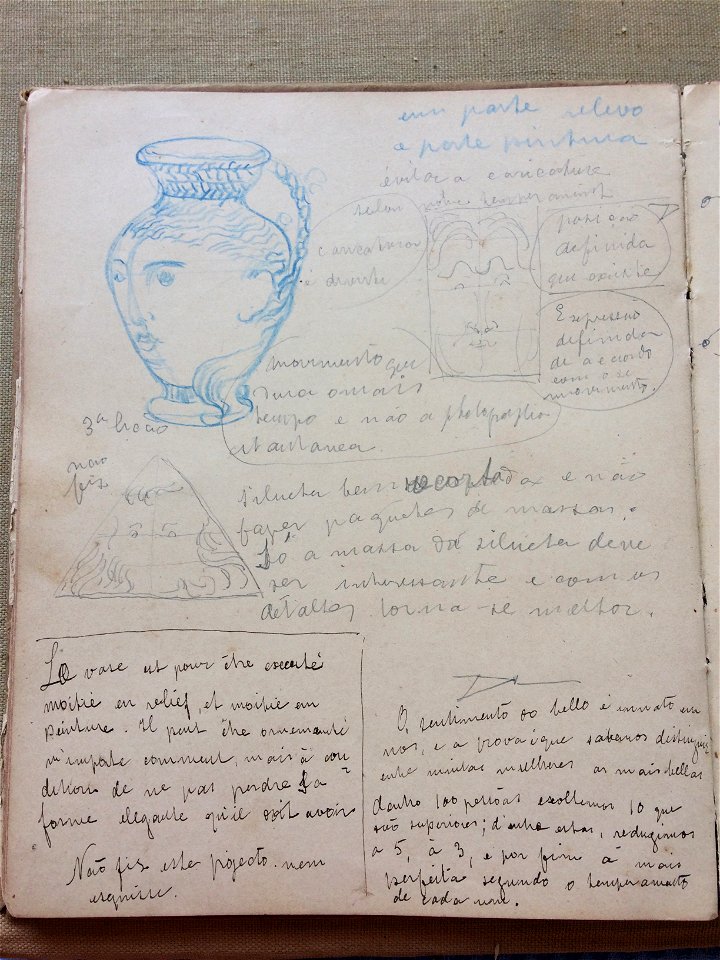 em parte relevo
e parte pintura
évitar a caricatura
selon notre temperament
caricatura
é diverte
posição
definida
que existe
Expressão
definida
de accordo
com o se
movimento.
movimento que
dura o mais
tempo e não a photographia
istantanea.
3ª lição
não
fiz
silueta bem recortadas e não
fazer paquetes de massas.
Só a massa da silueta deve
ser interessante e com os
detalhes torna-se melhor.
Le vase est pour être executé
moitié en relief, et moitié en
peinture. Il peut être ornementé
n'importe comment, mais à con-
dition de ne pas perdre la
forme elegante qu'il doit avoir
Não fiz este projecto nem
esquisse.
O sentimento do bello é innato em
nós, e a prova é que sabemos distinguir
entre muitas mulheres as mais bellas
dentre 100 pessôas escolhemos 10 que
são superiores; d'entre estas, reduzimos
a 5, à 3, e por fim à mais
perfeita segundo o temperamento
de cada um.